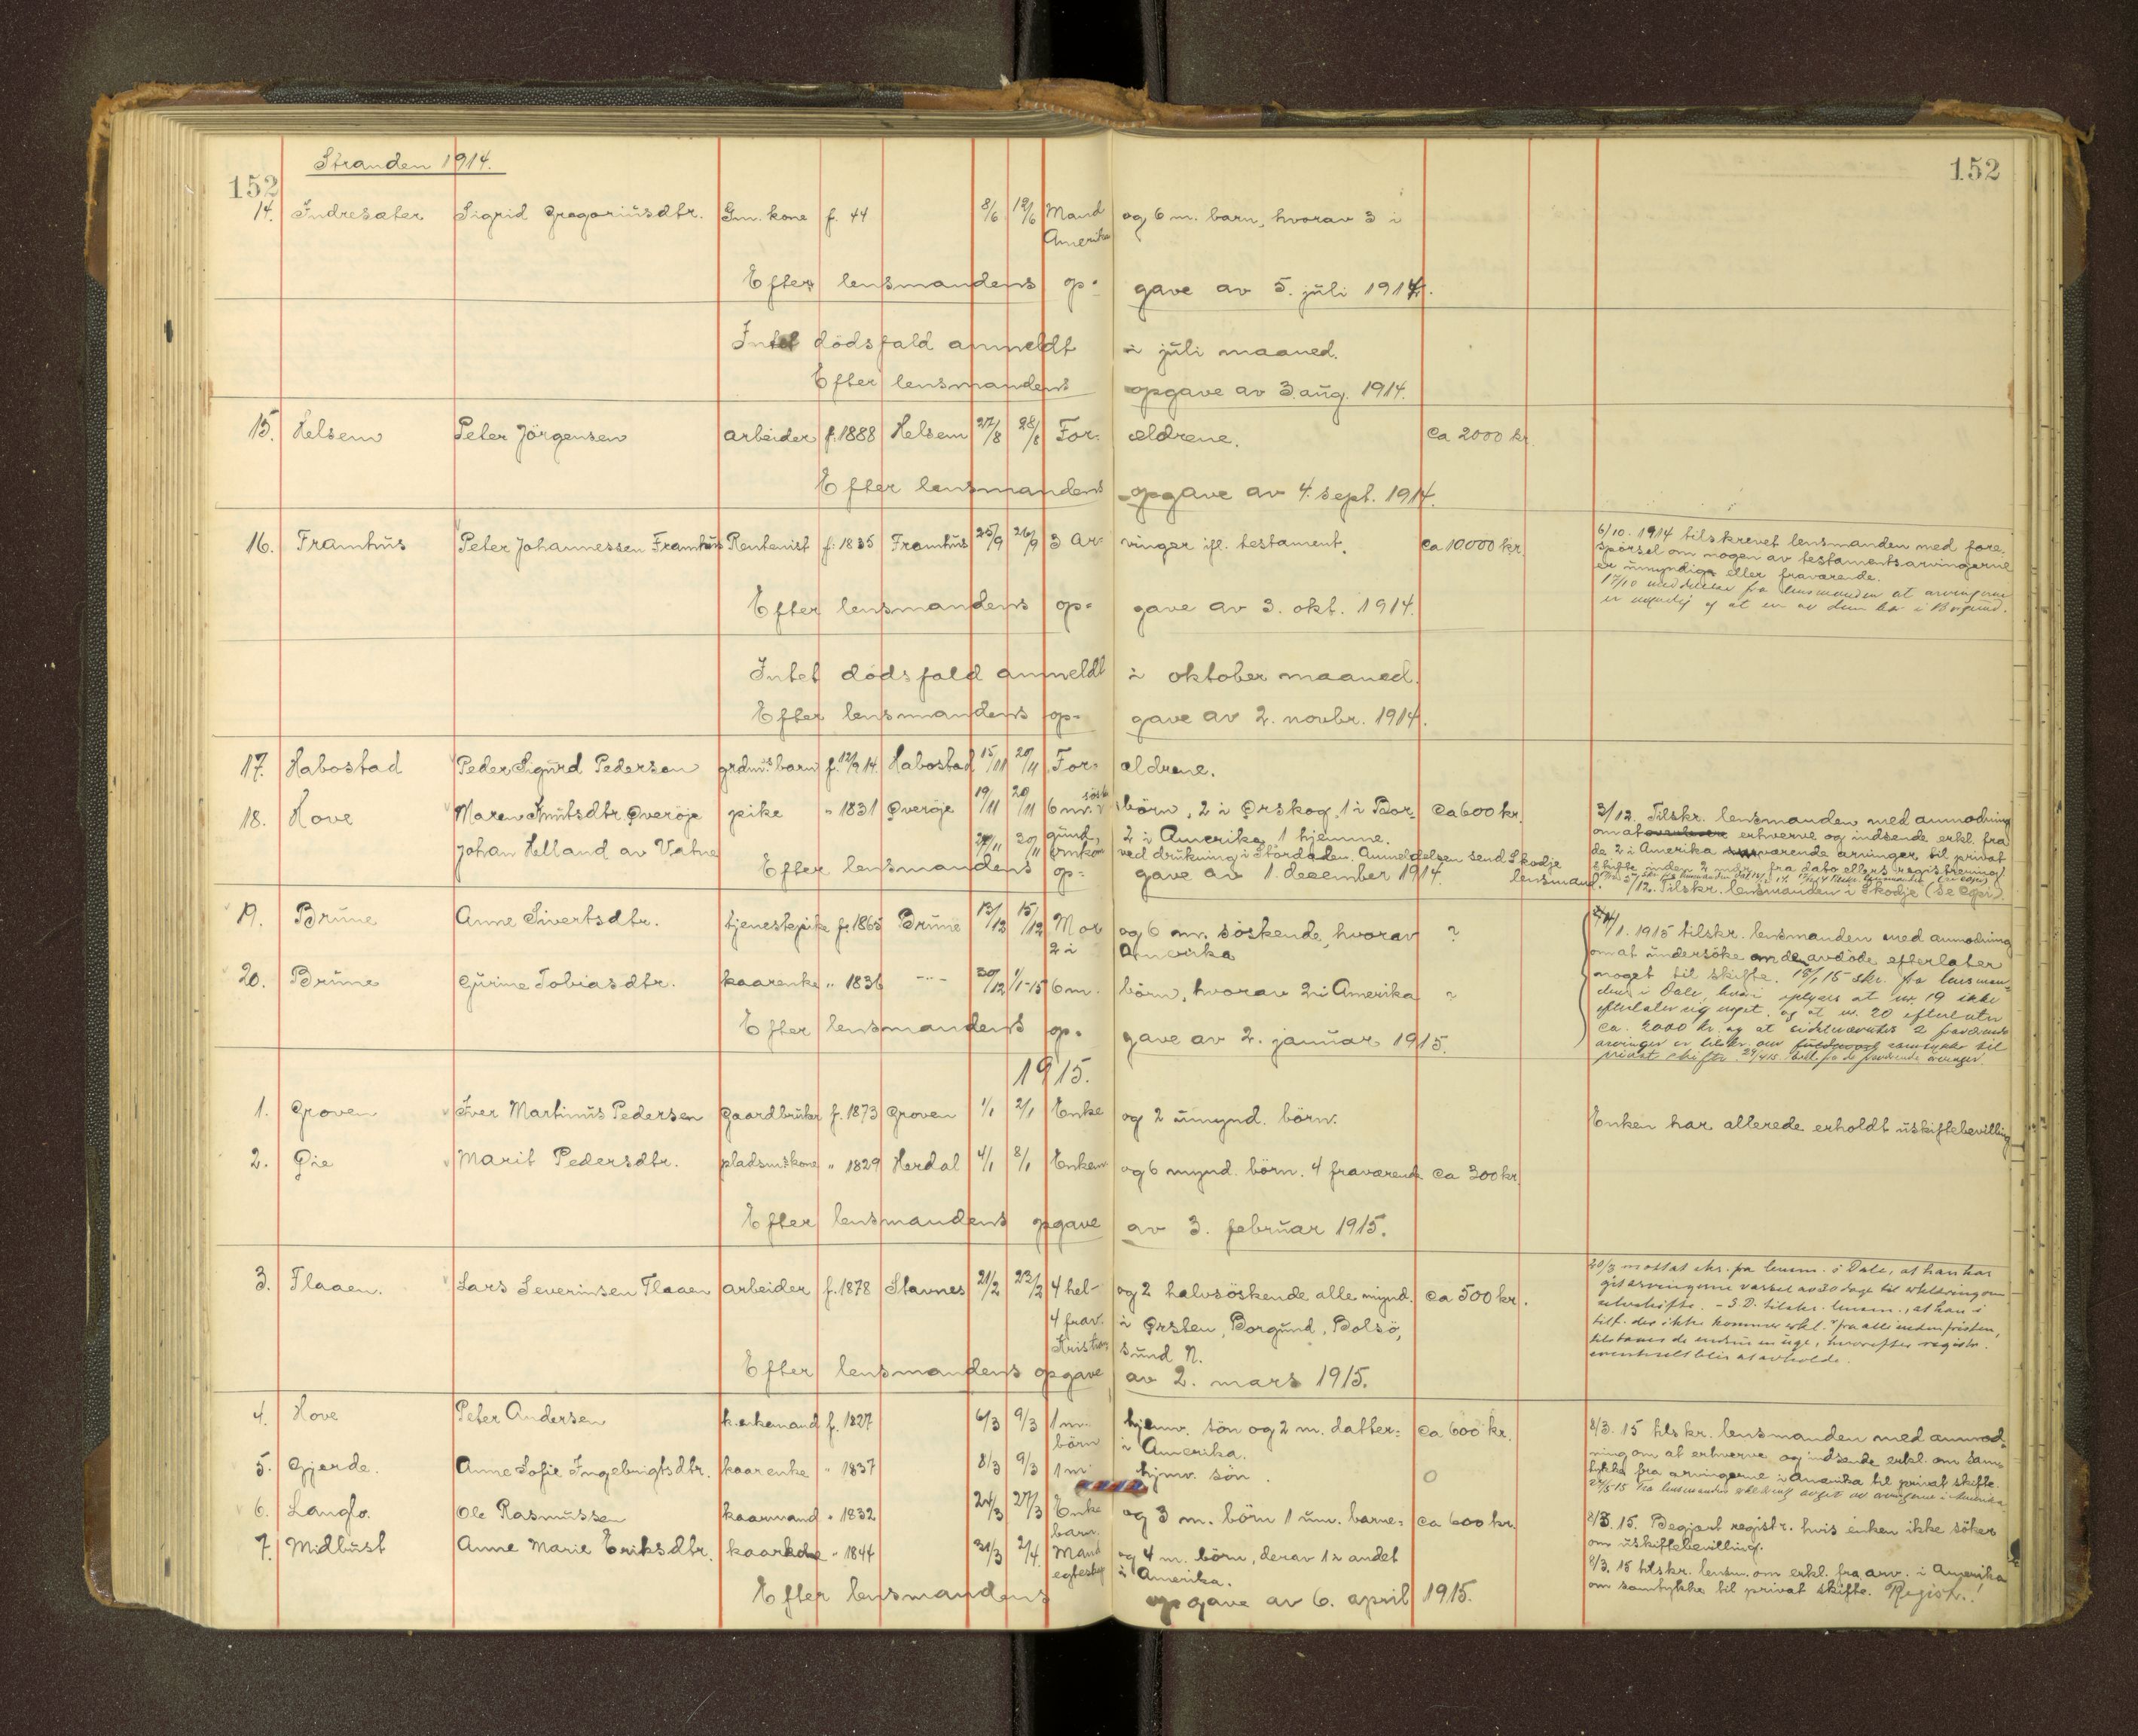 Stranden 1914.
152 152
14. Indresæter Sigrid Gregoriusdtr. Gm. kone f. 44 8/6 12/6 Mand og 6 m. barn, hvorav 3 i
Amerika
Efter lensmandens op= gave av 5. juli 1914.
Intet dödsfald anmeldt i juli maaned.
Efter lensmandens opgave av 3. aug. 1914.
15. Helsem Peter Jörgensen arbeider f. 1888 Helsem 27/8 28/8 For= ældrene. ca 2000 kr.
Efter lensmandens opgave av 4. sept. 1914.
16. Framhus Peter Johannessen Framhus Rentenist f. 1835 Framhus 25/9 26/9 3 Ar= vinger ifl. testament. ca 10000 kr.
6/10. 1914 tilskrevet lensmanden med fore=
spörsel om nogen av testamentsarvingerne
er umyndige eller fraværende.
17/10 meddelelse fra lensmanden at arvingerne
er myndig og at en av dem bor i Borgund.
Efter lensmandens op= gave av 3. okt. 1914.
Intet dödsfald anmeldt i oktober maaned.
Efter lensmandens op= gave av 2. novbr. 1914.
17. Habostad Peder Sigurd Pedersen grdm.s barn f. 12/9 14. Habostad 15/11 20/11 For= ældrene.
18. Hove Maren Knutsdtr. Överöje pike " 1831 Överöje 19/11 20/11 6 m. söskb börn, 2 i Ørskog, 1 i Bor= ca 600 kr.
gund, 2 i Amerika, 1 hjemme.
Johan Helland av Vatne 24/11 30/11 omkom ved drukning i Stordalen. Anmeldelsen send Skodje
lensmand.
Efter lensmandens op= gave av 1. december 1914.
3/12. Tilskr. lensmanden med anmodning
om at erhverve og indsende erkl. fra
de 2 i Amerika værende arvinger til privat
skifte inden 2 mdr. fra dato ellers registrering.
5/12. Tilskr. lensmanden i Skodje (se copi).
19. Brune Anne Sivertsdtr. tjenestepike f. 1865 Brune 13/12 15/12 Mor og 6 m. söskende, hvorav ?
2 i Amerika
20. Brune Gurine Tobiasdtr. kaarenke " 1836 -"- 30/12 1/1-15 6 m. börn, hvorav 2 i Amerika ?
Efter lensmandens op= gave av 2. januar 1915.
1. 1915 tilskr. lensmanden med anmodning
om at undersöke om de avdöde efterlater
noget til skifte. 15 skr. fra lensman=
den i Dale, hvori oplyses at nr. 19 ikke
efterlater sig noget, og at nr. 20 efterlater
ca. 2000 kr. og at 2 fraværende
arvinger er tilskr. om samtykke til
privat skifte. fra de fraværende arvinger.
1915.
1. Groven Iver Martinus Pedersen Gaardbruker f. 1873 Groven 1/1 2/1 Enke og 2 umynd. börn. Enken har allerede erholdt uskiftebevilling
2. Øie Marit Pedersdtr. pladsm.skone " 1829 Herdal 4/1 8/1 Enkem og 6 mynd. börn. 4 fraværende ca 300 kr.
Efter lensmandens opgave av 3. februar 1915.
3. Flaaen. Lars Severinsen Flaaen arbeider f. 1878 Stavnes 21/2 22/2 4 hel- og 2 halvsöskende alle mynd. ca 500 kr.
4 frav. i Ørsten, Borgund, Bolsö,
Kristian sund N.
Efter lensmandens opgave av 2. mars 1915.
20/3 mottat skr. fra lensm. i Dale, at han har
git arvingerne varsel av 30 dage til erklæring om
selvskifte. - S.D. tilskr. lensm., at han i
tilf. der ikke kommer erkl. fra alle inden fristen,
tilstaaes de endnu en uge, hvorefter registr.
eventuelt blir at avholde.
4. Hove Peter Andersen k.enkemand f. 1827 6/3 9/3 1 m. hjemv. sön og 2 m. datter= ca 600 kr.
börn i Amerika.
5. Gjerde. Anne Sofie Ingebrigtsdtr. kaarenke " 1837 8/3 9/3 1 m. hjmv. sön. 0
6. Langlo. Ole Rasmussen kaarmand " 1832 24/3 27/3 Enke og 3 m. börn 1 um. barne= ca 600 kr.
barn.
7. Midtbust Anne Marie Eriksdtr. kaarkone " 1844 31/3 2/4 Mand og 4 m. börn, derav 1 av andet
egteskap i Amerika.
Efter lensmandens opgave av 6. april 1915.
8/3. 15 tilskr. lensmanden med anmod=
ning om at erhverve og indsende erkl. om sam=
tykke fra arvingerne i Amerika til privat skifte.
8/3. 15. Begjært registr. hvis enken ikke söker
om uskiftebevilling.
8/3. 15 tilskr. lensm. om erkl. fra arv. i Amerika
om samtykke til privat skifte. Registr.!